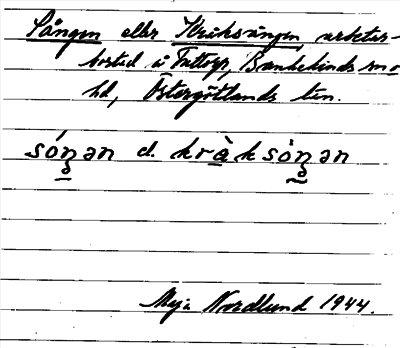 Sången eller Kråksången, arbetar-
bostad i Tuttorp, Bankekinds sn o
hd, Östergötlands län.
sóŋən el. kràksòŋən
Maja Nordlund 1944.